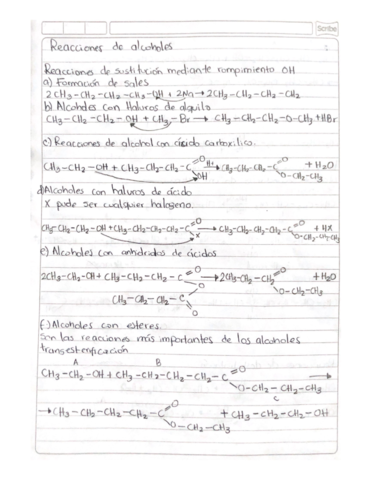 Scribe
Reacciones de alcoholes
Reacciones de sustitución mediante rompimiento OH
a) Formación de sales
2CH₃-CH₂-CH₂-CH₂-OH + 2Na → 2CH₃-CH₂-CH₂-CH₂
b) Alcoholes con Haluros de alquilo
CH₃-CH₂-CH₂-OH + CH₃-Br → CH₃-CH₂-CH₂-O-CH₃ + HBr
c) Reacciones de alcohol con ácido carboxílico.
CH₃-CH₂-OH + CH₃-CH₂-CH₂-C=O H+ → CH₃-CH₂-CH₂-C=O + H₂O
OH O-CH₂-CH₃
d) Alcoholes con haluros de ácido
X puede ser cualquier halogeno.
CH₃-CH₂-CH₂-OH + CH₃-CH₂-CH₂-CH₂-C=O → CH₃-CH₂-CH₂-CH₂-C=O + HX
X O-CH₂-CH₂-CH₃
e) Alcoholes con anhidridos de ácidos
2CH₃-CH₂-OH + CH₃-CH₂-CH₂-C=O → 2CH₃-CH₂-CH₂=O + H₂O
O O-CH₂-CH₃
CH₃-CH₂-CH₂-C
=O
f) Alcoholes con esteres.
Son las reacciones más importantes de los alcoholes
transesterificación
A B
CH₃-CH₂-OH + CH₃-CH₂-CH₂-CH₂-C=O →
O-CH₂-CH₂-CH₃
C
→ CH₃-CH₂-CH₂-CH₂-C=O + CH₃-CH₂-CH₂-OH
O-CH₂-CH₃